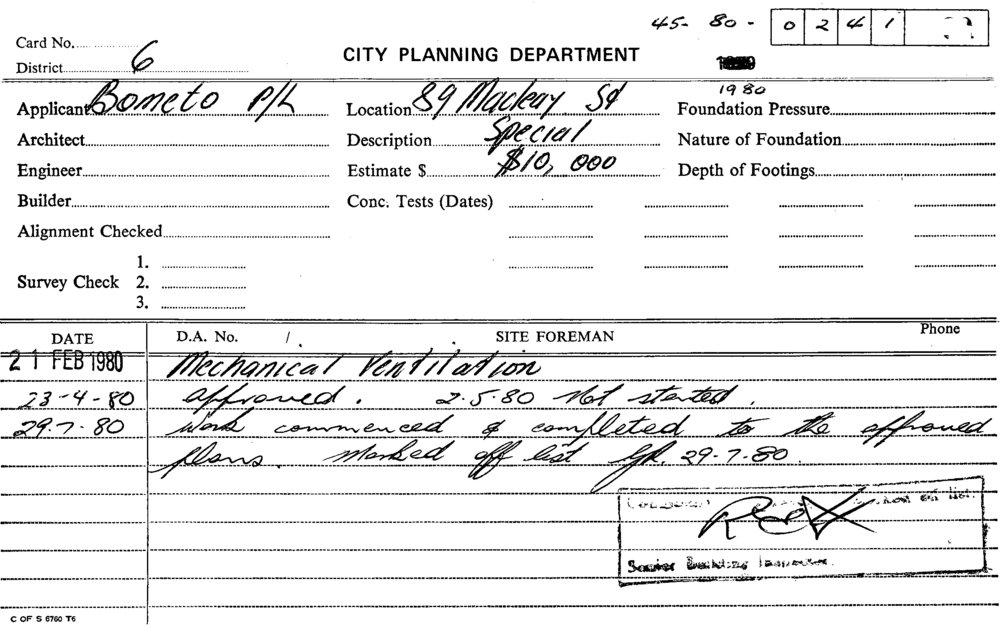 45- 80- 0241
Card No.
District 6
CITY PLANNING DEPARTMENT
1980
Applicant Bometo P/L
Location 89 Macleay St
Foundation Pressure
Architect
Description Special
Nature of Foundation
Engineer
Estimate $ $10,000
Depth of Footings
Builder
Conc. Tests (Dates)
Alignment Checked
Survey Check
1.
2.
3.
DATE
D.A. No. /
SITE FOREMAN
Phone
21 FEB 1980 Mechanical Ventilation
23-4-80 approved. 2.5.80 Not started.
29.7.80 Work commenced & completed to the approved
plans. Marked off list 29-7-80
on list.
Senior Building
C OF S 6760 T6